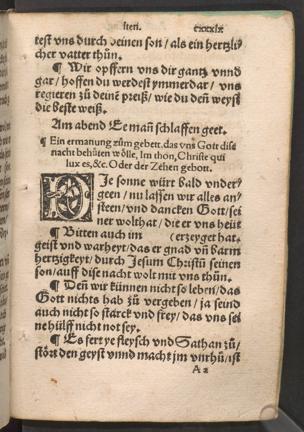 sten. cxxxix
test vns durch deinen son / als ein hertzli-
cher vatter thůn.
¶ Wir opffern vns dir gantz vnnd
gar / hoffen du werdest ymmerdar / vns
regieren zů deinẽ preiß / wie du den weyst
die beste weiß.
Am abend Ee man schlaffen geet.
¶ Ein ermanung zům gebett. das vns Gott dise
nacht behüten wölle, Im thon, Christe qui
lux es, &c. Oder der Zehen gebott.
DIe sonne würt bald vnder
geen / nu lassen wir alles an
steen / vnd dancken Gott / sei
ner wolthat / die er vns heüt
¶ Bitten auch im ( erzeyget hat.
geist vnd warheyt / das er gnad vñ barm
hertzigkeyt / durch Jesum Christũ seinen
son / auff dise nacht wolt mit vns thůn.
¶ Deñ wir künnen nicht so leben / das
Gott nichts hab zů vergeben / ja seind
auch nicht so starck vnd frey / das vns sei
ne hülff nicht not sey.
¶ Es fert ye fleysch vnd Sathan zů /
stört den geyst vnnd macht im vnrhů / ist
A a